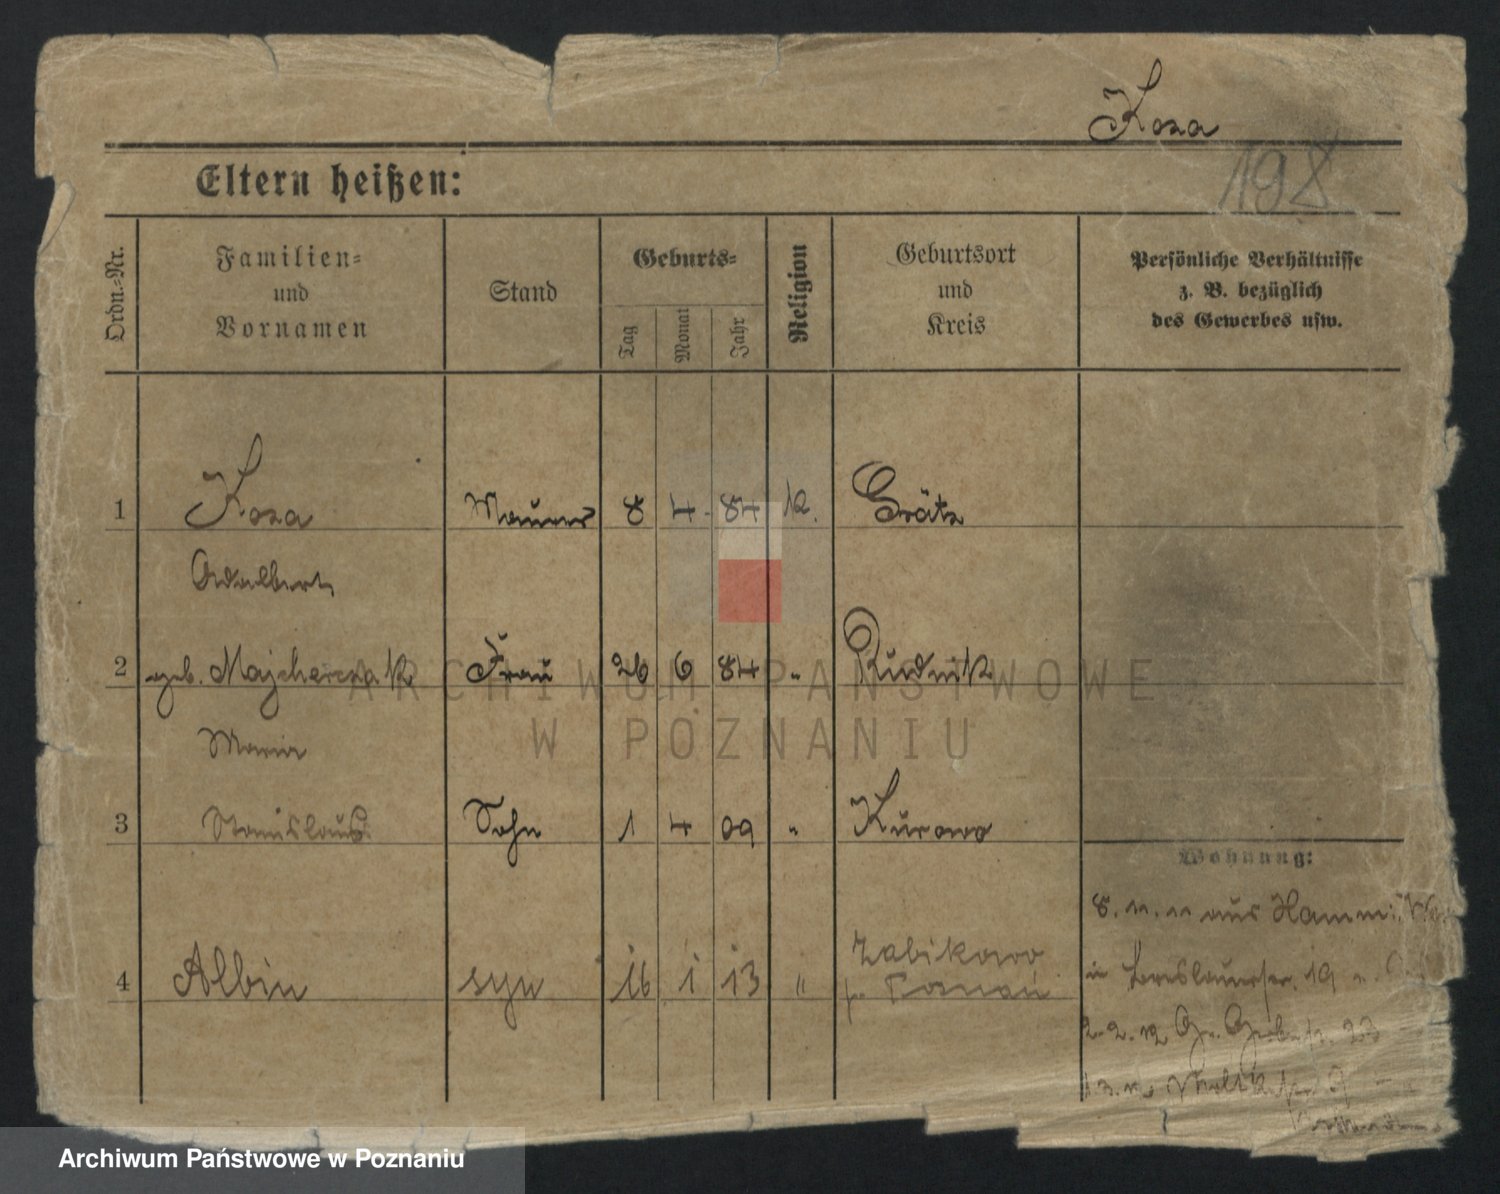 Koza
198
Eltern heißen:
Ordn.-Nr.
Familien-
und
Vornamen
Stand
Geburts-
Tag
Monat
Jahr
Religion
Geburtsort
und
Kreis
Persönliche Verhältnisse
z. B. bezüglich
des Gewerbes usw.
1 Koza Maurer 8 4 84 k. Grätz
Adalbert
2 geb. Majcherczak Frau 26 6 84 " Rudnik
Maria
3 Stanislaus Sohn 1 4 09 " Kurowo
Wohnung:
8. 11. 11 aus Hamm
4 Albin syn 16 1 13 " Żabikowo
p. Poznań
in Breslauerstr. 19
2. 2. 12 Gr. Gerberstr. 23
ARCHIWUM PAŃSTWOWE
W POZNANIU
Archiwum Państwowe w Poznaniu